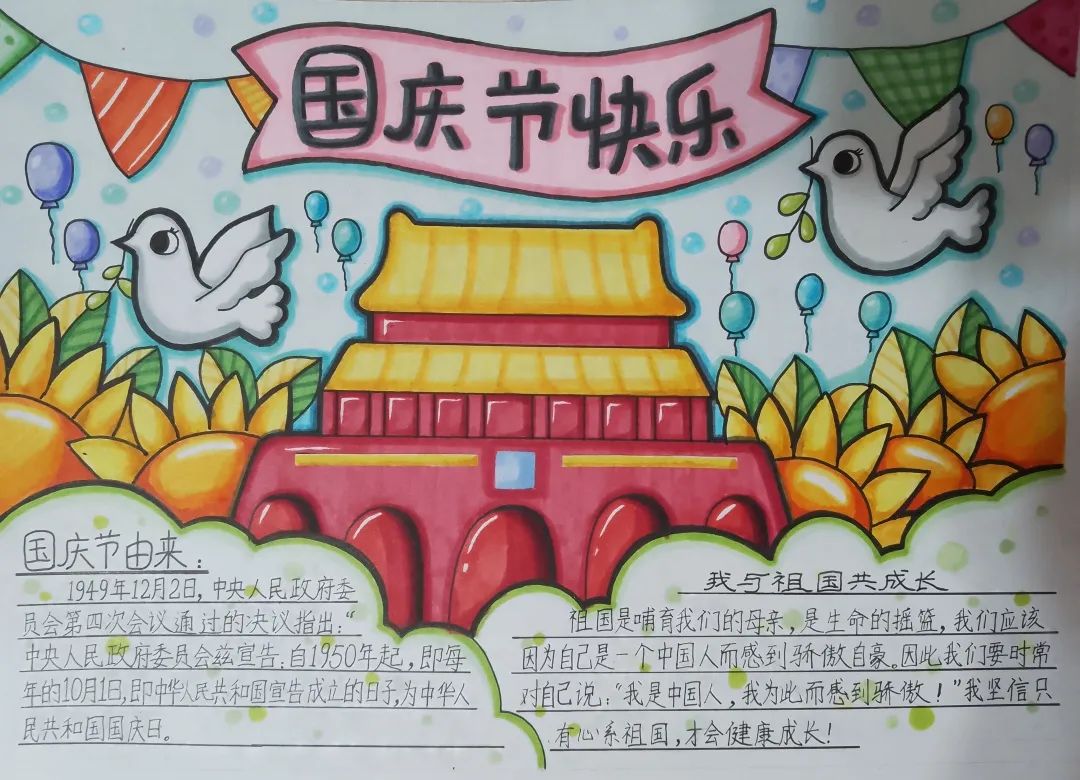 国庆节快乐
国庆节由来：
1949年12月2日，中央人民政府委
员会第四次会议通过的决议指出：“
中央人民政府委员会兹宣告：自1950年起，即每
年的10月1日，即中华人民共和国宣告成立的日子，为中华人
民共和国国庆日。
我与祖国共成长
祖国是哺育我们的母亲，是生命的摇篮，我们应该
因为自己是一个中国人而感到骄傲自豪。因此我们要时常
对自己说：“我是中国人，我为此而感到骄傲！”我坚信只
有心系祖国，才会健康成长！